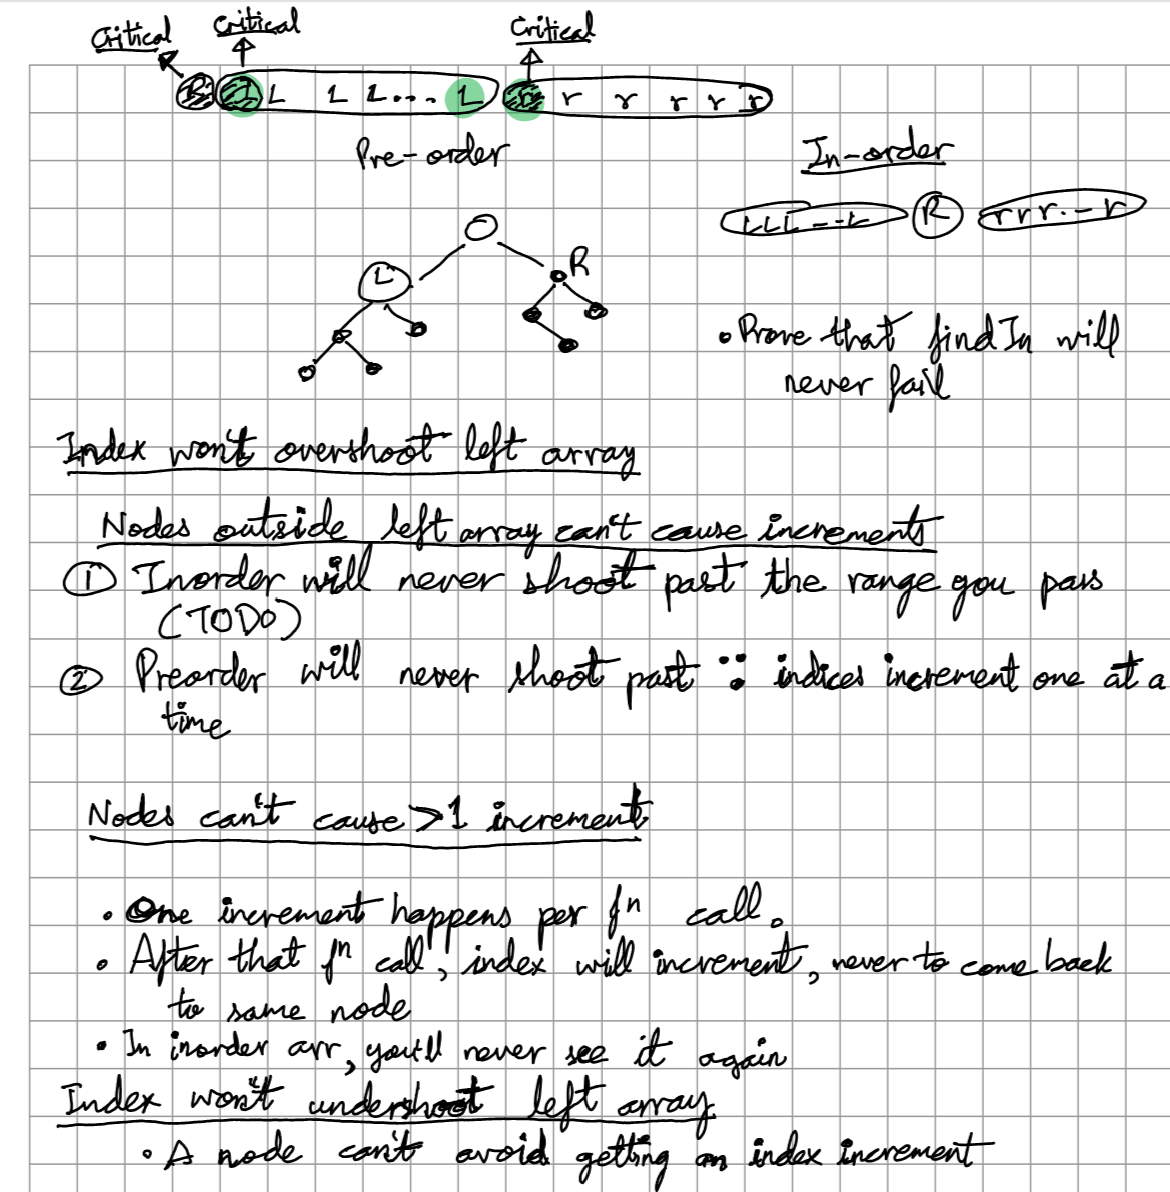 Critical
Critical
Critical
R L L L L... L r r r r r r
Pre-order
In-order
LLL --L R rrr.-r
L
R
• Prove that findIn will
never fail
Index won't overshoot left array
Nodes outside left array can't cause increments
① Inorder will never shoot past the range you pass
(TODO)
② Preorder will never shoot past ∵ indices increment one at a
time
Nodes can't cause >1 increment
• One increment happens per fⁿ call.
• After that fⁿ call, index will increment, never to come back
to same node
• In inorder arr, you'll never see it again
Index won't undershoot left array
• A node can't avoid getting an index increment